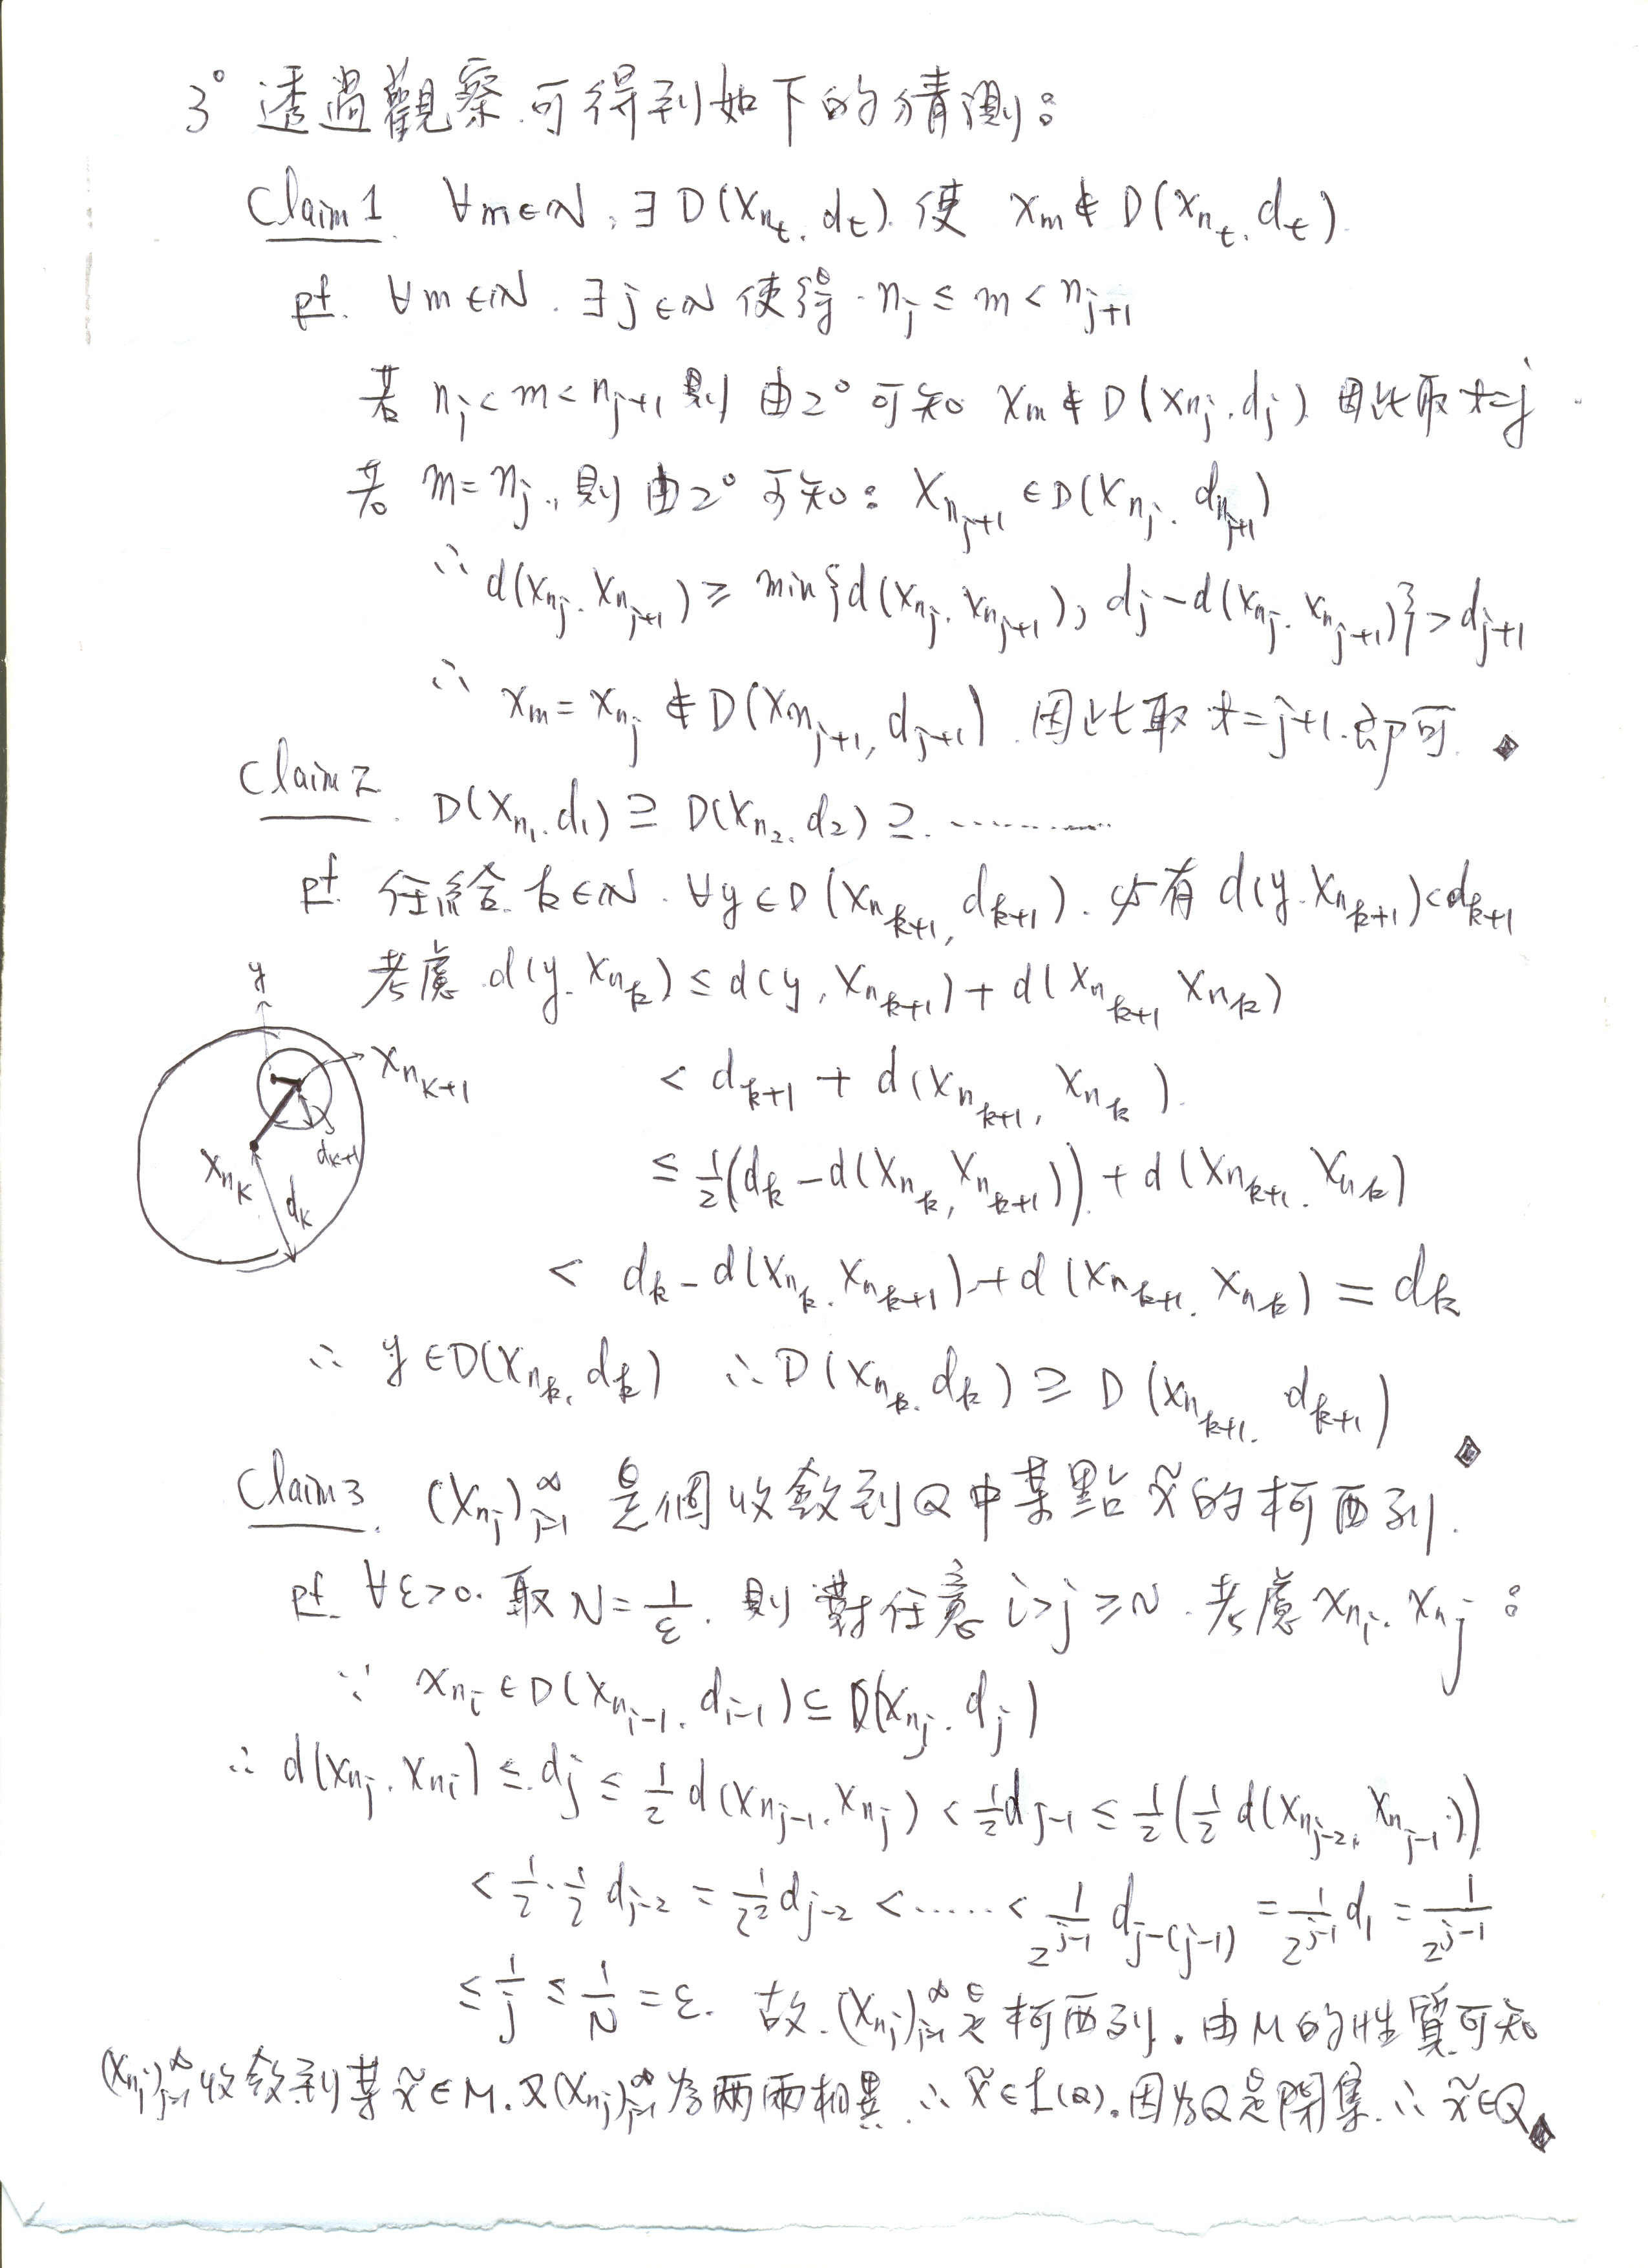 3° 透過觀察.可得到如下的猜測:
Claim 1. ∀m∈ℕ, ∃ D(x_{n_t}, d_t) 使 x_m ∉ D(x_{n_t}, d_t)
pf. ∀m∈ℕ. ∃j∈ℕ 使得. n_j ≤ m < n_{j+1}
若 n_j < m < n_{j+1} 則 由2°可知 x_m ∉ D(x_{n_j}, d_j). 因此取 t=j
若 m = n_j, 則由2°可知: x_{n_{j+1}} ∈ D(x_{n_j}, d_{n_{j+1}})
∴ d(x_{n_j}, x_{n_{j+1}}) ≥ min{d(x_{n_j}, x_{n_{j+1}}), d_j - d(x_{n_j}, x_{n_{j+1}})} > d_{j+1}
∴ x_m = x_{n_j} ∉ D(x_{n_{j+1}}, d_{j+1}). 因此取 t=j+1.即可. ◆
Claim 2. D(x_{n_1}, d_1) ⊇ D(x_{n_2}, d_2) ⊇ ............
pf. 任給 k∈ℕ. ∀y∈D(x_{n_{k+1}}, d_{k+1}). 必有 d(y, x_{n_{k+1}}) < d_{k+1}
考慮 d(y, x_{n_k}) ≤ d(y, x_{n_{k+1}}) + d(x_{n_{k+1}}, x_{n_k})
y
x_{n_{k+1}}
x_{n_k}
d_{k+1}
d_k
< d_{k+1} + d(x_{n_{k+1}}, x_{n_k}).
≤ ½(d_k - d(x_{n_k}, x_{n_{k+1}})) + d(x_{n_{k+1}}, x_{n_k})
< d_k - d(x_{n_k}, x_{n_{k+1}}) + d(x_{n_{k+1}}, x_{n_k}) = d_k
∴ y∈D(x_{n_k}, d_k) ∴ D(x_{n_k}, d_k) ⊇ D(x_{n_{k+1}}, d_{k+1}) ◆
Claim 3. (x_{n_j})_{j=1}^∞ 是個收斂到Q中某點 x̃ 的柯西列.
pf. ∀ε>0. 取 N = 1/ε. 則對任意 i>j≥N. 考慮 x_{n_i}, x_{n_j}:
∵ x_{n_i} ∈ D(x_{n_{i-1}}, d_{i-1}) ⊆ D(x_{n_j}, d_j)
∴ d(x_{n_j}, x_{n_i}) ≤ d_j ≤ ½ d(x_{n_{j-1}}, x_{n_j}) < ½ d_{j-1} ≤ ½(½ d(x_{n_{j-2}}, x_{n_{j-1}}))
< ½·½ d_{j-2} = 1/2² d_{j-2} < ..... < 1/2^{j-1} d_{j-(j-1)} = 1/2^{j-1} d_1 = 1/2^{j-1}
≤ 1/j ≤ 1/N = ε. 故.(x_{n_j})_{j=1}^∞ 是柯西列. 由M的性質可知
(x_{n_j})_{j=1}^∞ 收斂到某 x̃∈M. 又(x_{n_j})_{j=1}^∞ 為兩兩相異. ∴ x̃∈L(Q). 因為Q是閉集. ∴ x̃∈Q ◆